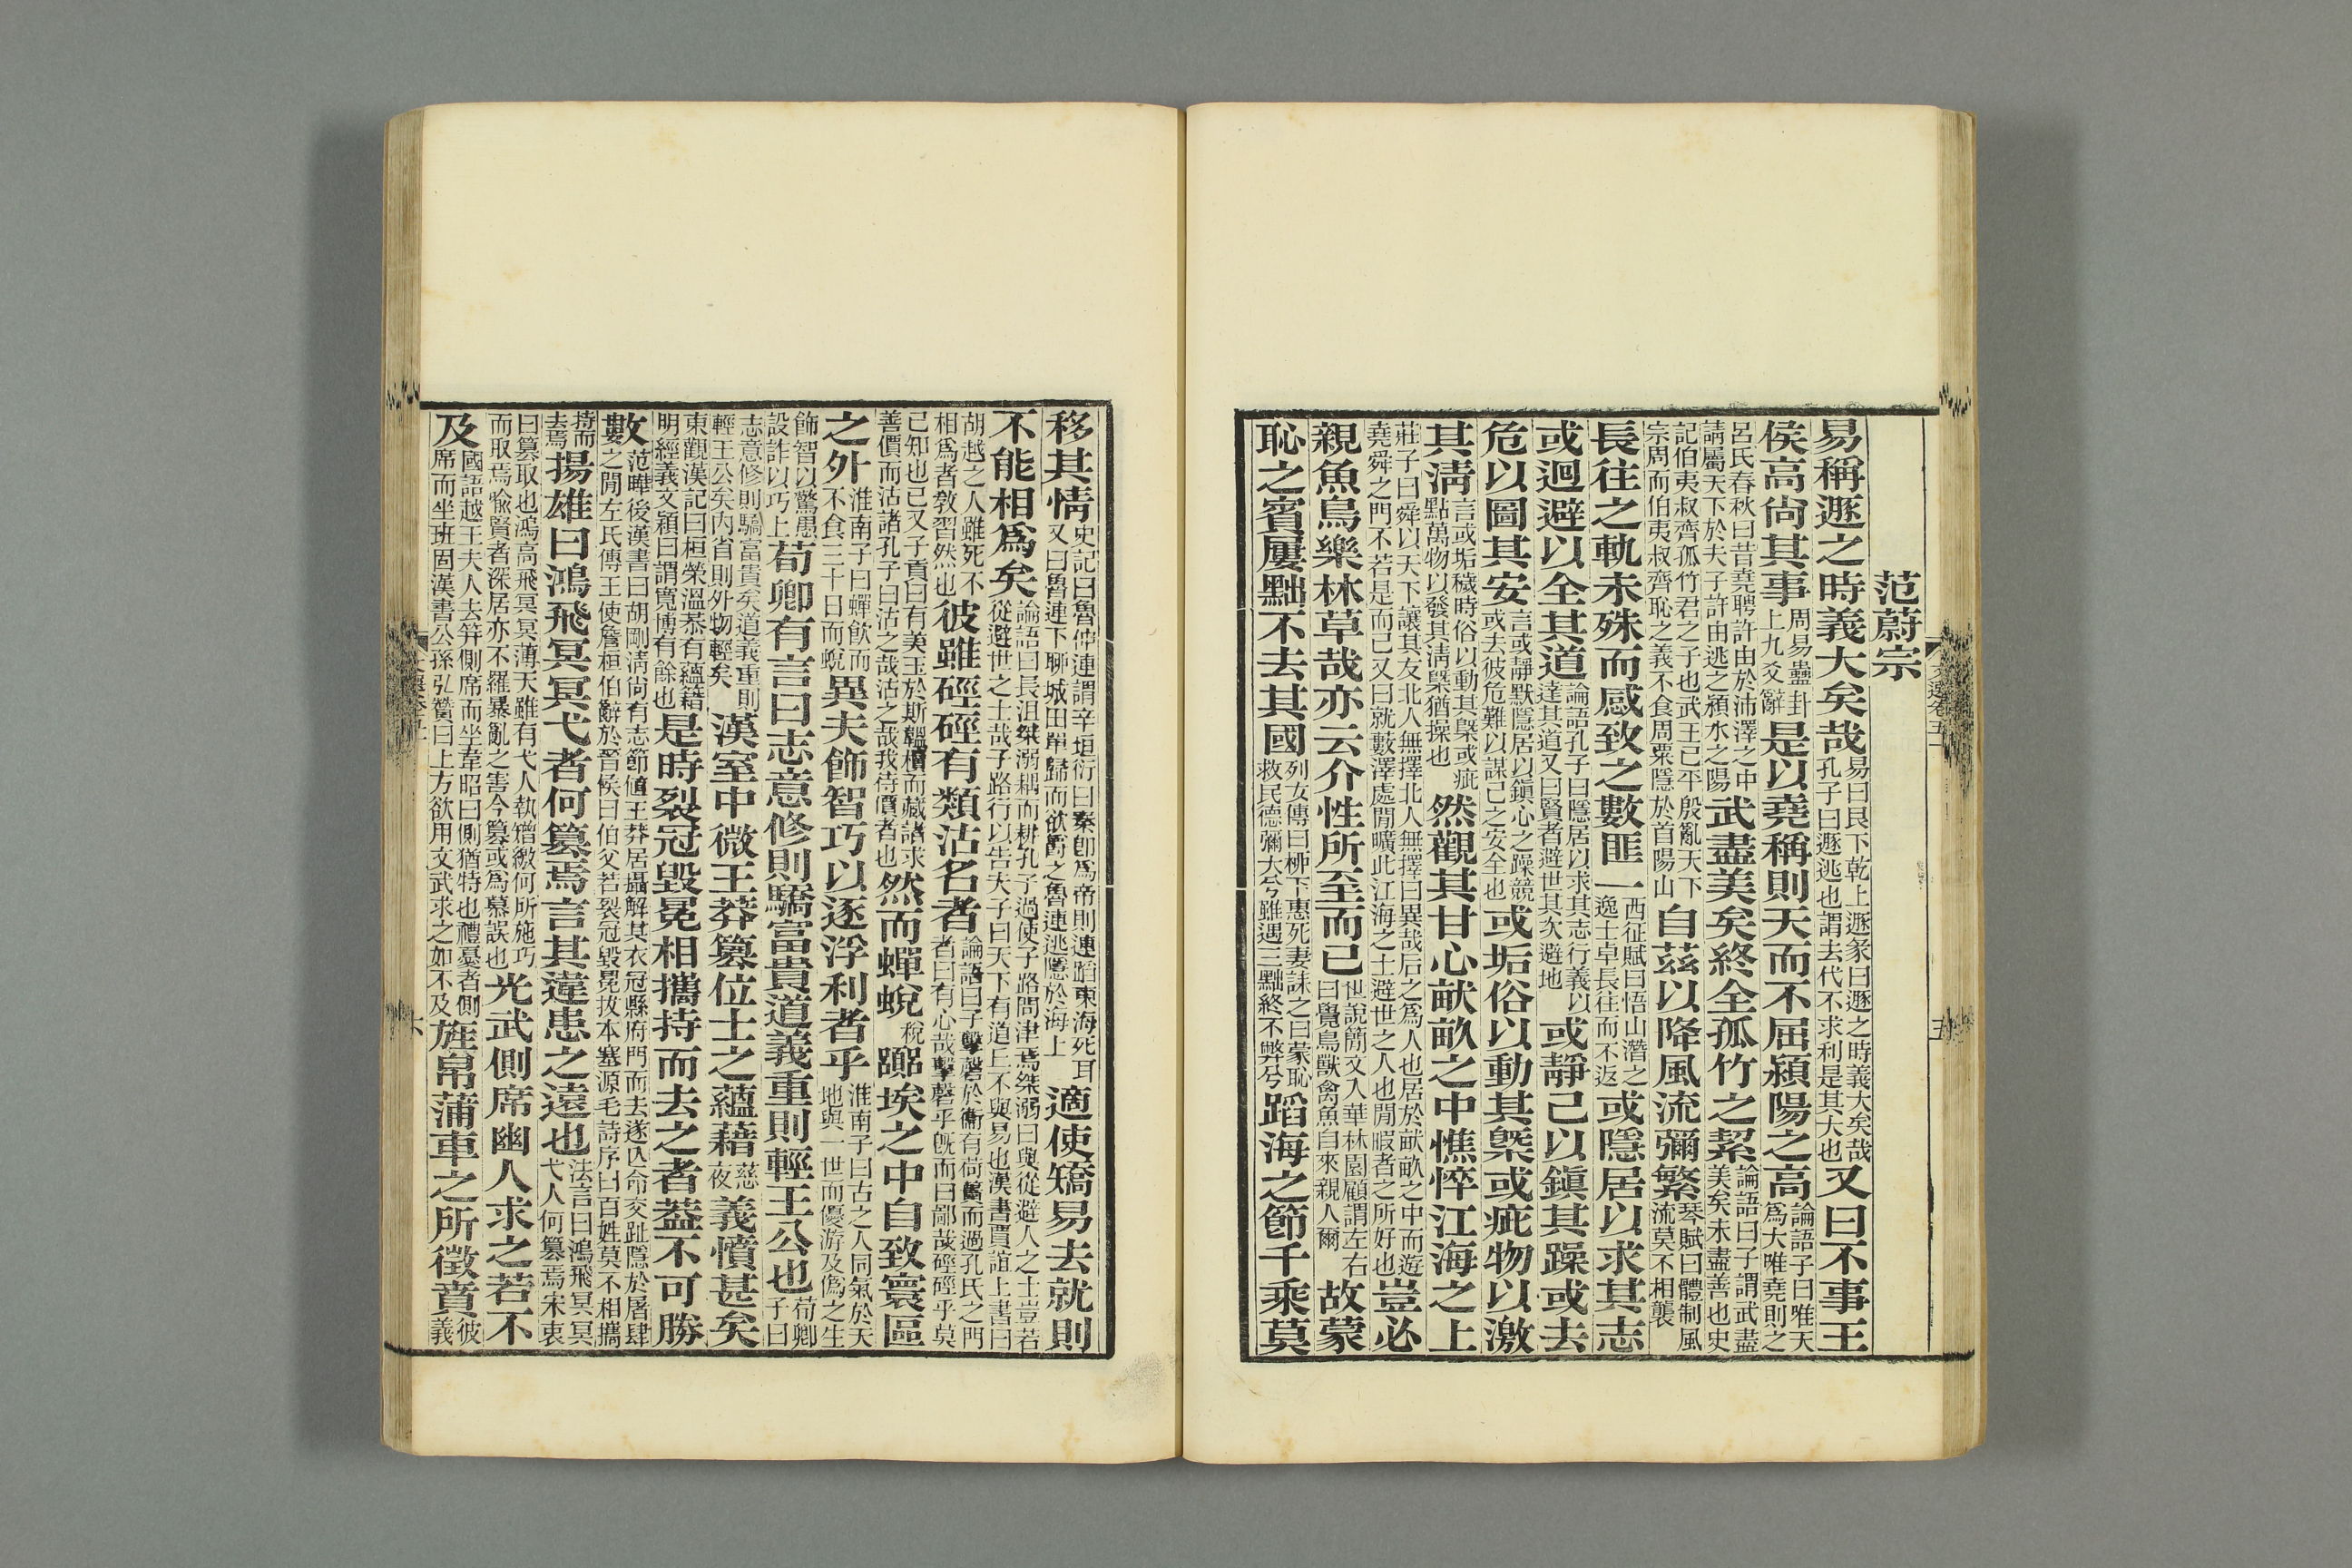 范蔚宗
易稱遯之時義大矣哉易曰艮下乾上遯彖曰遯之時義大矣哉孔子曰遯逃也謂去代不求利是其大也又曰不事王
侯高尙其事周易蠱卦上九爻辭是以堯稱則天而不屈潁陽之高論語子曰唯天爲大唯堯則之
呂氏春秋曰昔堯聘許由於沛澤之中請屬天下於夫子許由逃之潁水之陽武盡美矣終全孤竹之絜論語曰子謂武盡美矣未盡善也史
記伯夷叔齊孤竹君之子也武王已平殷亂天下宗周而伯夷叔齊恥之義不食周粟隱於首陽山自茲以降風流彌繁琴賦曰體制風流莫不相襲
長往之軌未殊而感致之數匪一西征賦曰悟山潛之逸士卓長往而不返或隱居以求其志
或迴避以全其道論語孔子曰隱居以求其志行義以達其道又曰賢者避世其次避地或靜己以鎭其躁或去
危以圖其安言或靜默隱居以鎭心之躁競或去彼危難以謀己之安全也或垢俗以動其槩或疵物以激
其淸言或垢穢時俗以動其槩或疵點萬物以發其淸槩猶操也然觀其甘心畎畝之中憔悴江海之上
莊子曰舜以天下讓其友北人無擇北人無擇曰異哉后之爲人也居於畎畝之中而遊堯舜之門不若是而已又曰就藪澤處閒曠此江海之士避世之人也閒暇者之所好也豈必
親魚鳥樂林草哉亦云介性所至而已世說簡文入華林園顧謂左右曰覺鳥獸禽魚自來親人爾故蒙
恥之賓屢黜不去其國列女傳曰柳下惠死妻誄之曰蒙恥救民德彌大兮雖遇三黜終不弊兮蹈海之節千乘莫
移其情史記曰魯仲連謂辛垣衍曰秦卽爲帝則連蹈東海死耳又曰魯連下聊城田單歸而欲爵之魯連逃隱於海上適使矯易去就則
不能相爲矣論語曰長沮桀溺耦而耕孔子過使子路問津焉桀溺曰與從避人之士豈若從避世之士哉子路行以告夫子曰天下有道丘不與易也漢書賈誼上書曰
胡越之人雖死不相爲者敎習然也彼雖硜硜有類沽名者論語曰子擊磬於衞有荷蕢而過孔氏之門者曰有心哉擊磬乎旣而曰鄙哉硜硜乎莫
己知也已又子貢曰有美玉於斯韞櫝而藏諸求善價而沽諸孔子曰沽之哉沽之哉我待價者也然而蟬蛻稅嚻埃之中自致寰區
之外淮南子曰蟬飮而不食三十日而蛻異夫飾智巧以逐浮利者乎淮南子曰古之人同氣於天地與一世而優游及僞之生
飾智以驚愚設詐以巧上荀卿有言曰志意修則驕富貴道義重則輕王公也荀卿子曰
志意修則驕富貴矣道義重則輕王公矣內省則外物輕矣漢室中微王莽簒位士之蘊藉慈夜義憤甚矣
東觀漢記曰桓榮溫恭有蘊藉明經義文穎曰謂寬博有餘也是時裂冠毀冕相攜持而去之者蓋不可勝
數范曄後漢書曰胡剛淸尙有志節値王莽居攝解其衣冠縣府門而去遂亾命交趾隱於屠肆之閒左氏傳王使詹桓伯辭於晉侯曰伯父若裂冠毀冕拔本塞源毛詩序曰百姓莫不相攜
持而去焉揚雄曰鴻飛冥冥弋者何簒焉言其違患之遠也法言曰鴻飛冥冥弋人何簒焉宋衷
曰簒取也鴻高飛冥冥薄天雖有弋人執矰繳何所施巧而取焉喩賢者深居亦不羅暴亂之害今簒或爲慕誤也光武側席幽人求之若不
及國語越王夫人去笄側席而坐韋昭曰側猶特也禮憂者側席而坐班固漢書公孫弘贊曰上方欲用文武求之如不及旌帛蒲車之所徵賁彼義